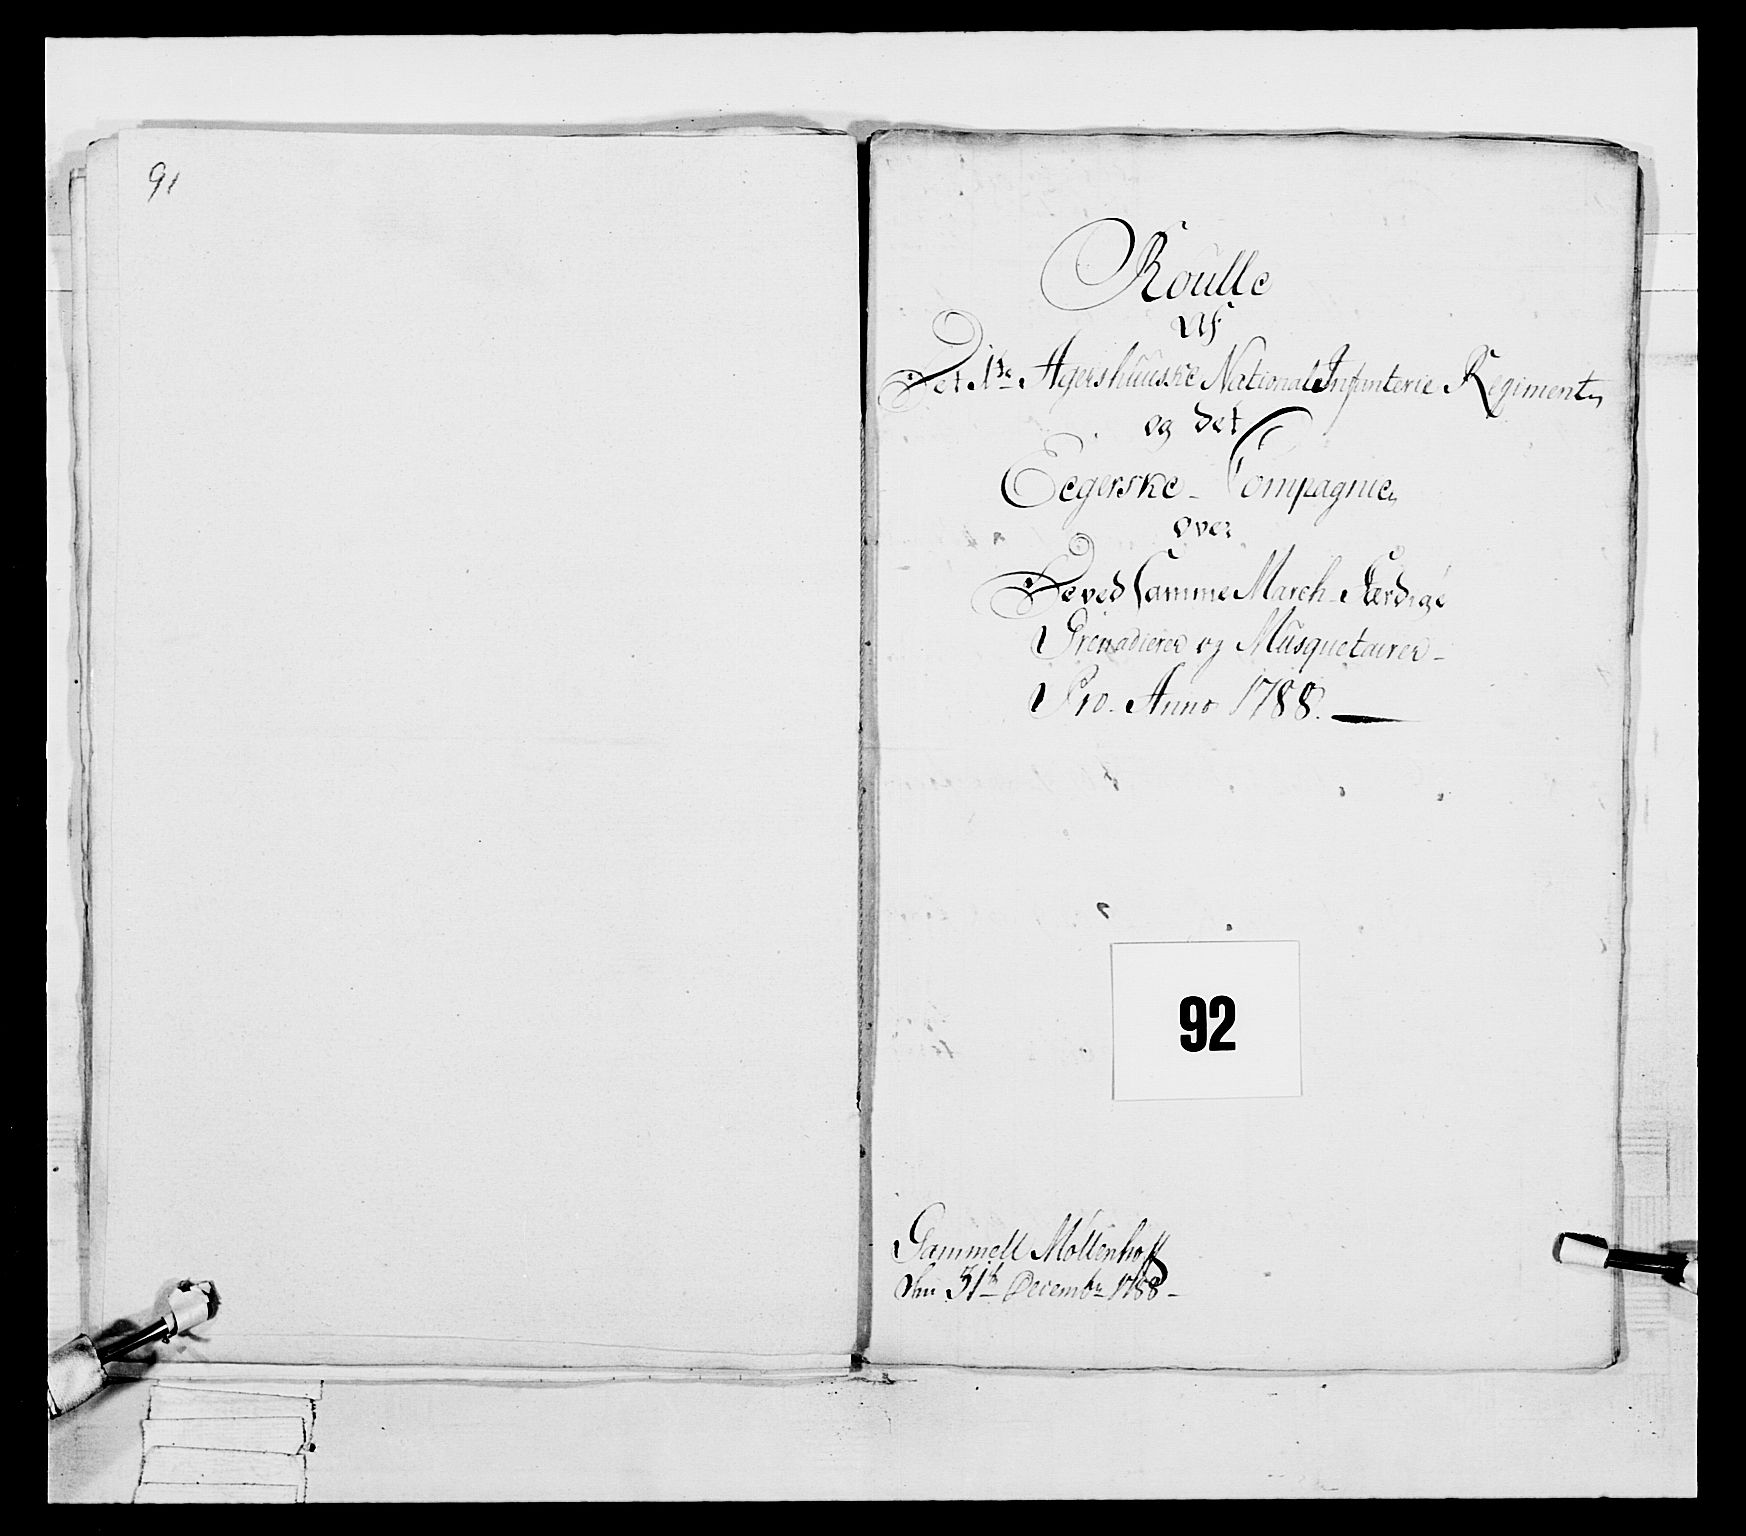 91
Roulle
Af
Det 1te Agershuuske National Infanterie Regiment
og det
Eegerske Compagnie
over
De ved Samme March Færdige
Grenadierer og Musquetairer
Pro Anno 1788.
92
Gammell Møllenhoff
den 31te Decembr 1788